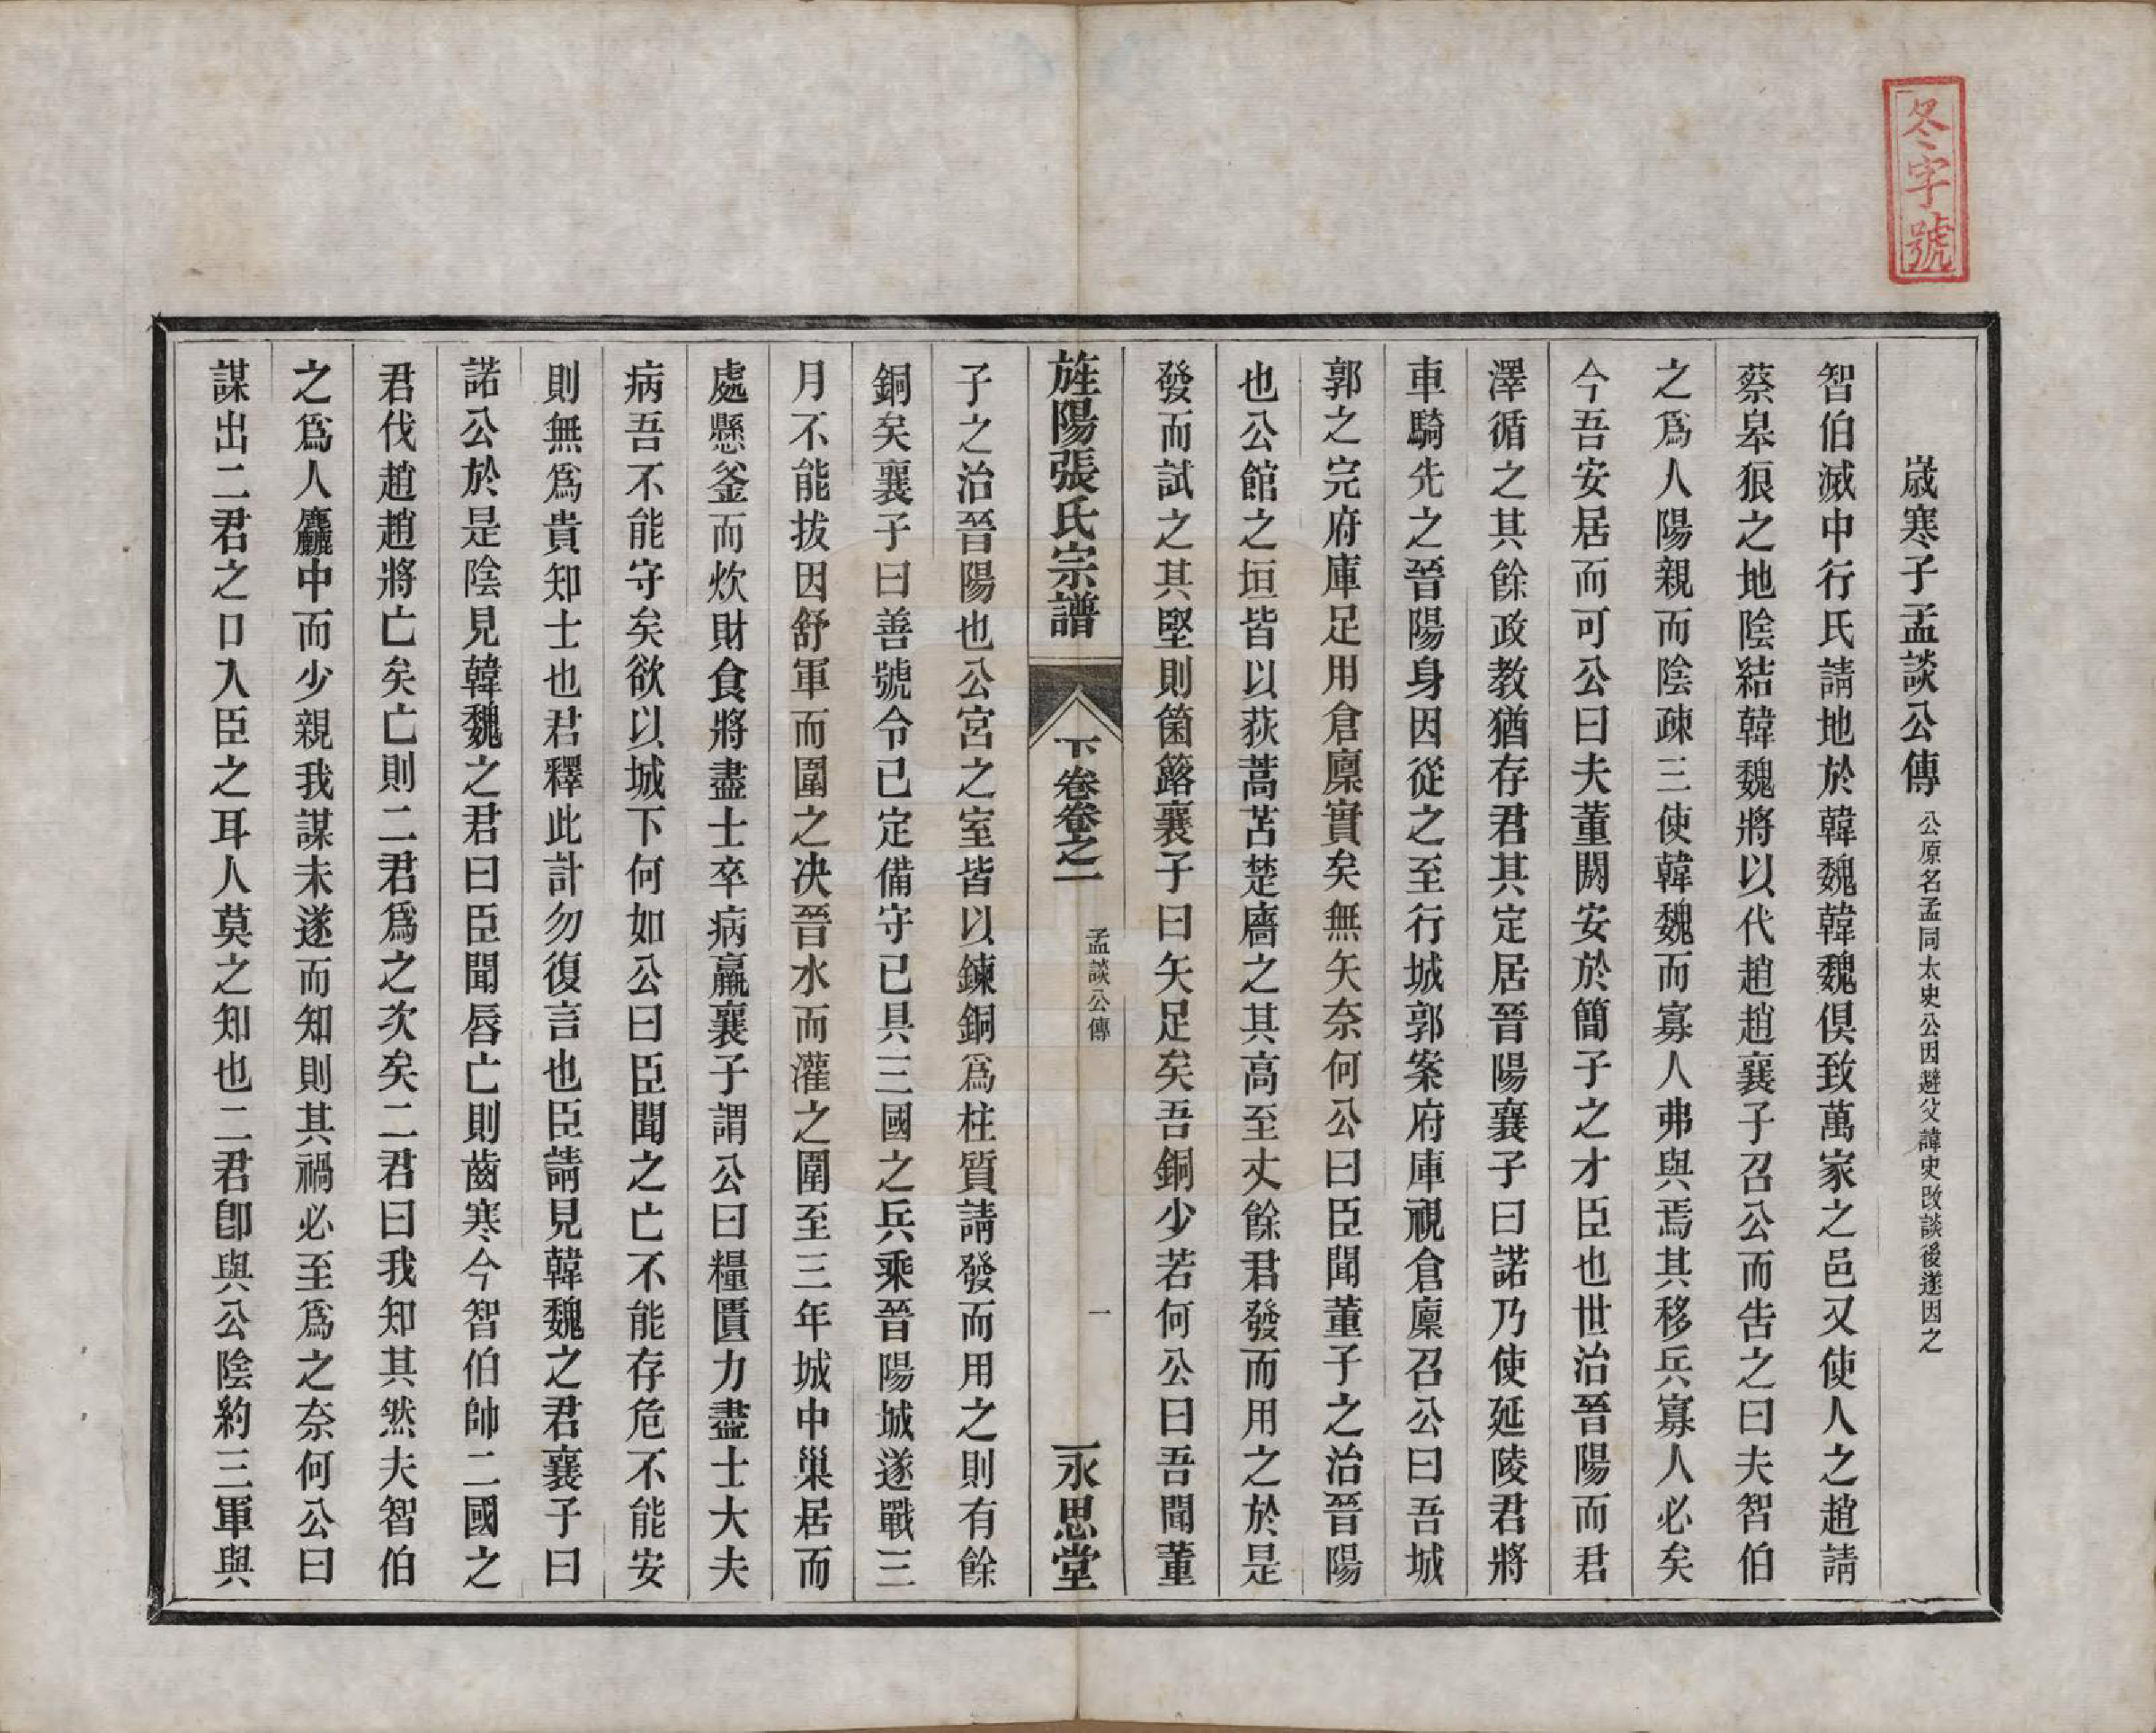 冬字號
歲寒子孟談公傳 公原名孟同太史公因避父諱史改談後遂因之
智伯滅中行氏請地於韓魏韓魏俱致萬家之邑又使人之趙請
蔡皋狼之地陰結韓魏將以代趙趙襄子召公而告之曰夫智伯
之爲人陽親而陰疎三使韓魏而寡人弗與焉其移兵寡人必矣
今吾安居而可公曰夫董閼安於簡子之才臣也世治晉陽而君
澤循之其餘政教猶存君其定居晉陽襄子曰諾乃使延陵君將
車騎先之晉陽身因從之至行城郭案府庫視倉廩召公曰吾城
郭之完府庫足用倉廩實矣無矢奈何公曰臣聞董子之治晉陽
也公館之垣皆以荻蒿苫楚廧之其高至丈餘君發而用之於是
發而試之其堅則箘簵襄子曰矢足矣吾銅少若何公曰吾聞董
旌陽張氏宗譜
下卷卷之一
孟談公傳
一
永思堂
子之治晉陽也公宮之室皆以鍊銅爲柱質請發而用之則有餘
銅矣襄子曰善號令已定備守已具三國之兵乘晉陽城遂戰三
月不能拔因舒軍而圍之决晉水而灌之圍至三年城中巢居而
處懸釜而炊財食將盡士卒病羸襄子謂公曰糧匱力盡士大夫
病吾不能守矣欲以城下何如公曰臣聞之亡不能存危不能安
則無爲貴知士也君釋此計勿復言也臣請見韓魏之君襄子曰
諾公於是陰見韓魏之君曰臣聞唇亡則齒寒今智伯帥二國之
君伐趙趙將亡矣亡則二君爲之次矣二君曰我知其然夫智伯
之爲人麤中而少親我謀未遂而知則其禍必至爲之奈何公曰
謀出二君之口入臣之耳人莫之知也二君卽與公陰約三軍與